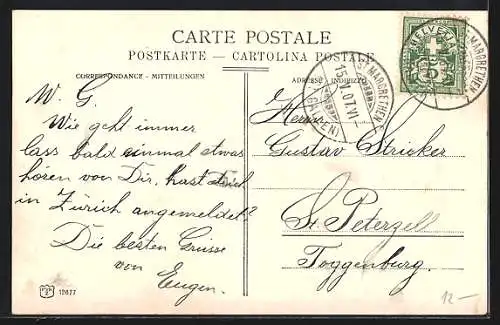 CARTE POSTALE
POSTKARTE — CARTOLINA POSTALE
CORRESPONDANCE - MITTEILUNGEN
ADRESSE - INDIRIZZO
HELVETIA
5
ST MARGRETHEN
ST MARGRETHEN
15.V.07.VI
(ST. GALLEN)
W. G.
Wie geht immer
lass bald einmal etwas
hören von Dir, hast Dich
in Zürich angemeldet?
Die besten Grüsse
von Eugen.
Herrn
Gustav Stricker
St. Peterzell
Toggenburg.
12677
12-